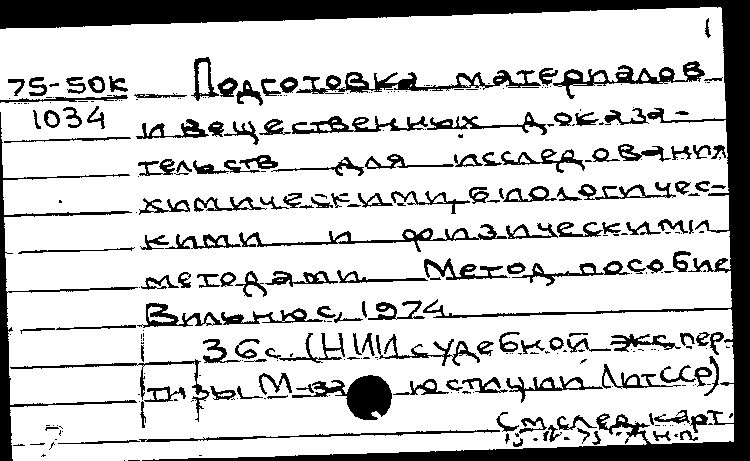 1
75-50к Подготовка материалов
1034 и вещественных доказа-
тельств для исследования
химическими, биологичес-
кими и физическими
методами. Метод. пособие
Вильнюс, 1974.
36с. (НИИ судебной экспер-
тизы М-ва юстиции ЛитССР)
См.след.карт.